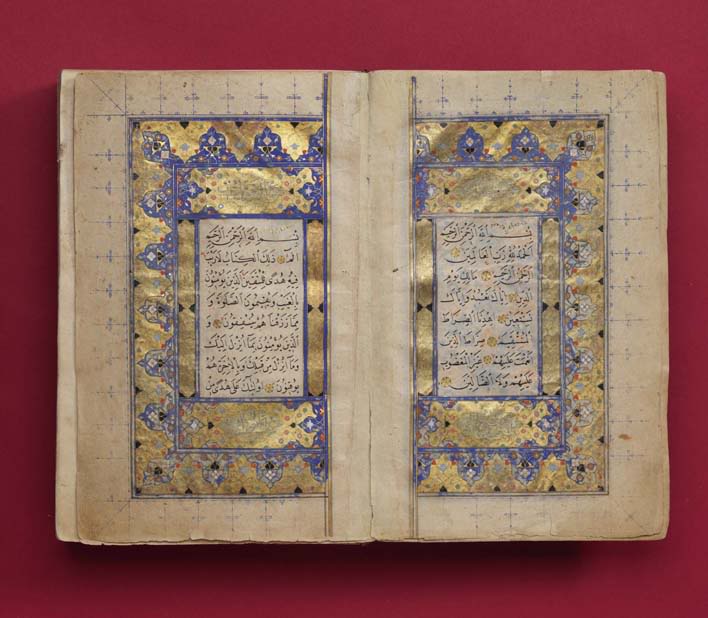 بِسْمِ اللهِ الرَّحْمٰنِ الرَّحِيمِ
اَلْحَمْدُ لِلهِ رَبِّ الْعَالَمِينَ
الرَّحْمٰنِ الرَّحِيمِ مَالِكِ يَوْمِ
الدِّينِ اِيَّاكَ نَعْبُدُ وَاِيَّاكَ
نَسْتَعِينُ اِهْدِنَا الصِّرَاطَ
الْمُسْتَقِيمَ صِرَاطَ الَّذِينَ
اَنْعَمْتَ عَلَيْهِمْ غَيْرِ الْمَغْضُوبِ
عَلَيْهِمْ وَلَا الضَّالِّينَ
بِسْمِ اللهِ الرَّحْمٰنِ الرَّحِيمِ
الم ذٰلِكَ الْكِتَابُ لَا رَيْبَ
فِيهِ هُدًى لِلْمُتَّقِينَ الَّذِينَ يُؤْمِنُونَ
بِالْغَيْبِ وَيُقِيمُونَ الصَّلٰوةَ وَ
مِمَّا رَزَقْنَاهُمْ يُنْفِقُونَ وَ
الَّذِينَ يُؤْمِنُونَ بِمَا اُنْزِلَ اِلَيْكَ
وَمَا اُنْزِلَ مِنْ قَبْلِكَ وَبِالْاٰخِرَةِ هُمْ
يُوقِنُونَ اُولٰئِكَ عَلٰى هُدًى مِنْ